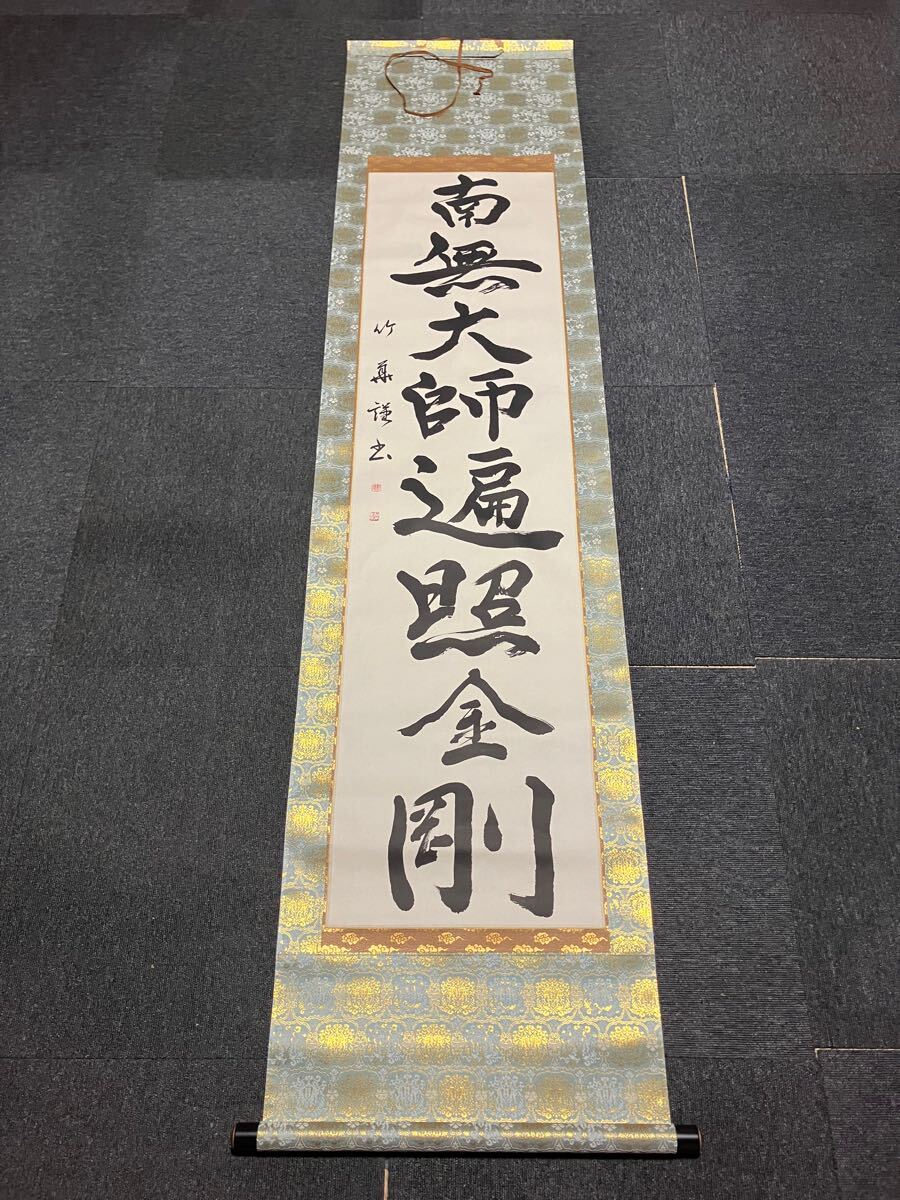 南無大師遍照金剛
竹華謹書